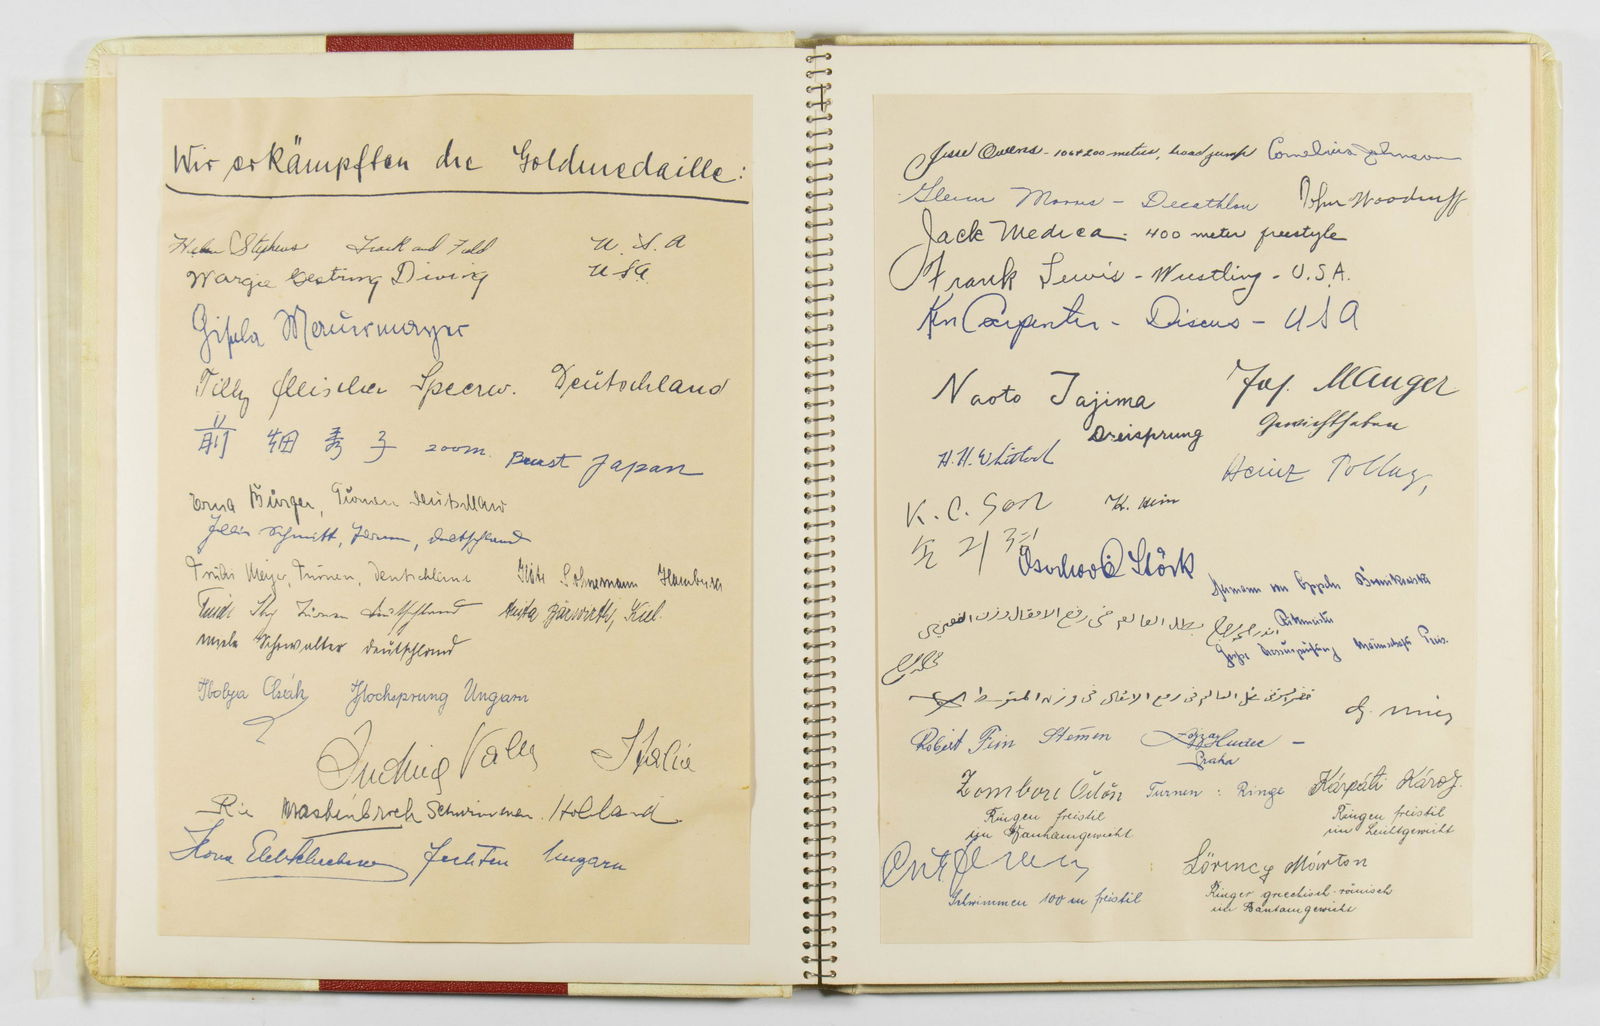 Wir erkämpften die Goldmedaille:
Helen Stephens Track and Field U.S.A
Margie Gestring Diving USA
Gisela Mauermayer
Tilly Fleischer Speerw. Deutschland
前畑秀子 200m. Breast Japan
Erna Bürger, Turnen Deutschland
Schmitt, Turnen, Deutschland
Trudi Meyer, Turnen, Deutschland Käte Sohnemann Hamburg
Turnen Deutschland Anita Bärwirth, Kiel.
Schwalter Deutschland
Ibolya Csák Hochsprung Ungarn
Valla Italia
Rie Mastenbroek Schwimmen. Holland
Ilona Elek Fechten Ungarn
Jesse Owens - 100+200 meters, broad jump Cornelius Johnson
Glenn Morris - Decathlon John Woodruff
Jack Medica - 400 meter freestyle
Frank Lewis - Wrestling - U.S.A.
Ken Carpenter - Discus - USA
Naoto Tajima Jos. Manger
Dreisprung Gewichtheben
H.H. Whitlock Heinz Pollay,
K.C. Son K. Hein
손긔졍
Stöck
Hermann von Oppeln Bronikowski
Rittmeister
بطل العالم فى رفع الاثقال وزن
Große Dressurprüfung Mannschaft Preis.
فى رفع الاثقال فى وزن المتوسط
Robert Fein Hudec -
Praha
Zombori Ödön Turnen: Ringe Kárpáti Károly.
Ringen freistil Ringen freistil
im Banthamgewicht im Leichtgewicht
Lörincz Márton
Schwimmen 100 m freistil Ringer griechisch-römisch
im Bantamgewicht